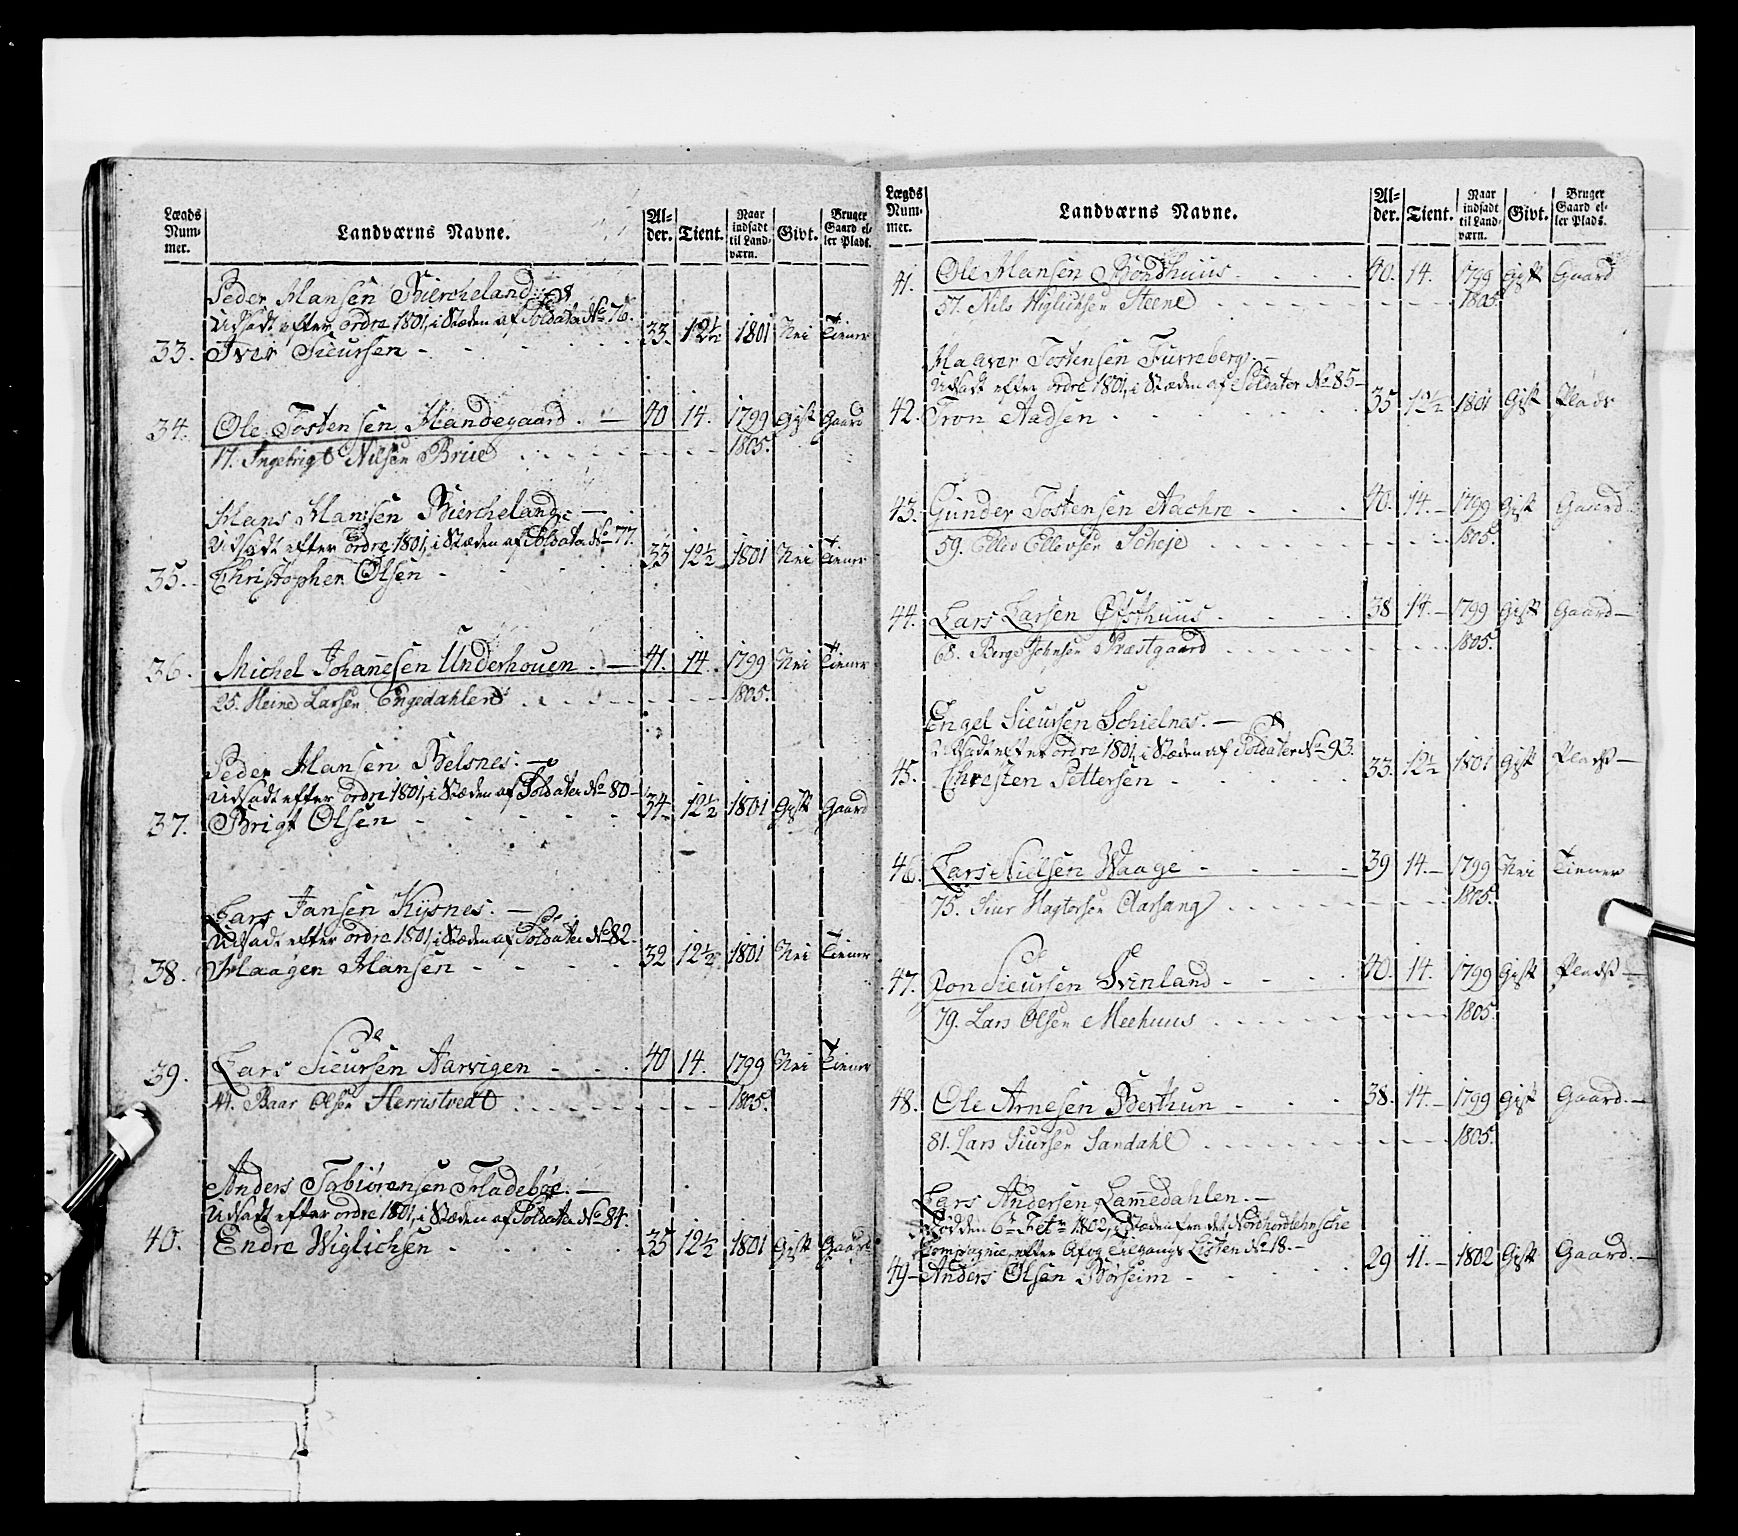 Lægds Num- mer. Landværns Navne. Al- der. Tient. Naar indsadt til Land- værn. Givt. Bruger Gaard el- ler Plads.
Peder Hansen Biercheland
Udsadt efter ordre 1801, i Stæden af Soldater No 76.
33. Iver Sieursen - 33. 12½ 1801 Nei Tiener
34. Ole Tostensen Handegaard. - 40 14. 1799 Gift Gaard
17. Ingebrigt Nilsen Briie 1805.
Hans Hansen Biercheland. -
Udsadt efter ordre 1801, i Stæden af Soldater No 77.
35. Christopher Olsen - 33 12½ 1801 Nei Tiener
36. Michel Johanesen Underhouen. - 41. 14. 1799 Nei Tiener
25. Heine Larsen Engedahlen 1805.
Peder Hansen Belsnes. -
Udsadt efter ordre 1801, i Stæden af Soldater No 80 -
37. Brigt Olsen - 34. 12½ 1801 Gift Gaard
Lars Jansen Kysnes. -
Udsadt efter ordre 1801, i Stæden af Soldater No 82 -
38. Haagen Hansen - 32 12½ 1801 Nei Tiener
39. Lars Sieursen Aarvigen 40 14. 1799 Nei Tiener
44. Baar Olsen Herristvedt 1805.
Anders Torbiörensen Fladebøe. -
Udsadt efter ordre 1801, i Stæden af Soldater No 84.
40. Endre Wiglichsen - 35 12½ 1801 Gift Gaard
Lægds Num- mer. Landværns Navne. Al- der. Tient. Naar indsadt til Land- værn. Givt. Bruger Gaard el- ler Plads.
41. Ole Hansen Bondhuus 40. 14. 1799 Gift Gaard
57. Nils Wiglichsen Steene 1805.
Haaver Tostensen Furreberg. -
Udsadt efter ordre 1801, i Stæden af Soldater No 85 -
42. Tron Aadsen 35 12½ 1801 Gift Plads
43. Gunder Tostensen Aachre 40. 14. - 1799 Gift Gaard
59. Ellev Ellevsen Scheje 1805.
44. Lars Larsen Øfsthuus 38 14. - 1799 Gift Gaard -
68. Berge Johnsen Præstgaard 1805.
Engel Sieursen Schielnæs. -
Udsadt efter ordre 1801, i Stæden af Soldater No 93.
45. Christen Pettersen - 33. 12½ 1801 Gift Plads -
46. Lars Nielsen Waage - 39 14. - 1799 Nei Tiener
75. Siur Hagtorsen Aarsang 1805.
47. Jon Sieursen Svinland - 40. 14. 1799 Gift Plads -
79. Lars Olsen Meehuus 1805.
48. Ole Arnesen Berthun - 38. 14. - 1799 Gift Gaard. -
81. Lars Siursen Sandahl 1805.
Lars Andersen Lamedahlen. -
Død den 6te Febr 1802, i Stæden fra det Nordhordlehnsche
Compagnie, efter Afog tilgangs Listen No 18. -
49 - Anders Olsen Børseim - 29 11. - 1802 Gift Gaard. -